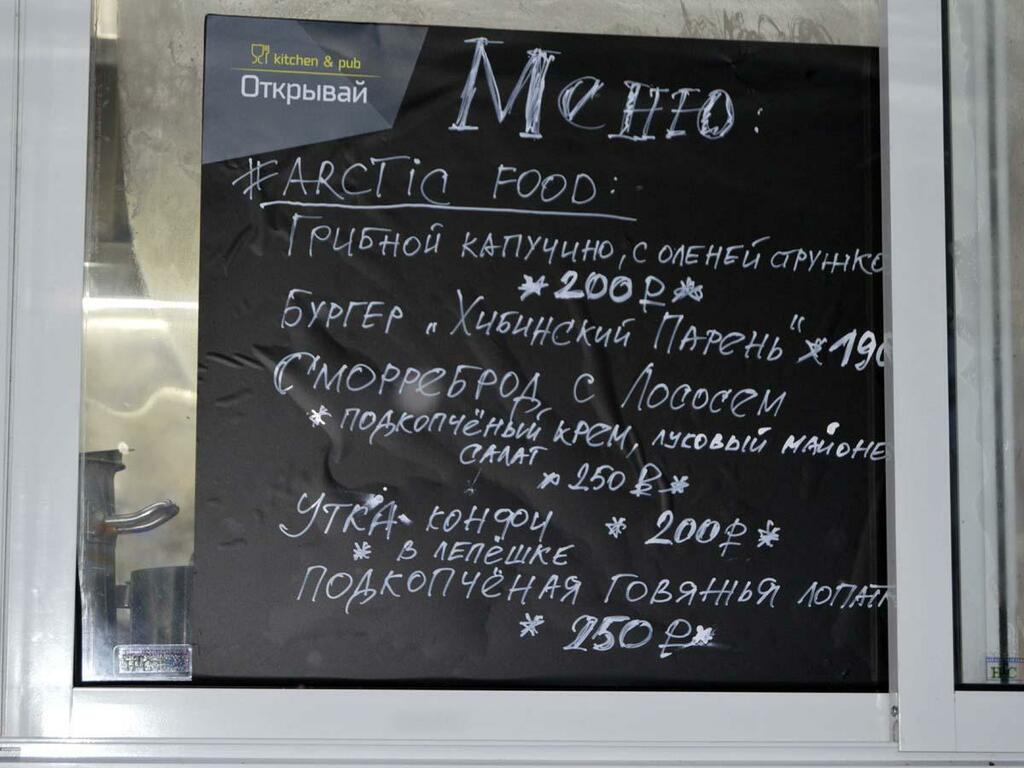 kitchen & pub
Открывай
Меню:
#ARCTIC FOOD:
Грибной капучино, с оленей стружко
*200₽*
Бургер „Хибинский Парень" *190
Сморреброд с Лососем
* подкопчёный крем, лусовый майоне
салат
*250₽*
Утка конфи *200₽*
* в лепёшке
Подкопчёная говяжья лопатк
*250₽*